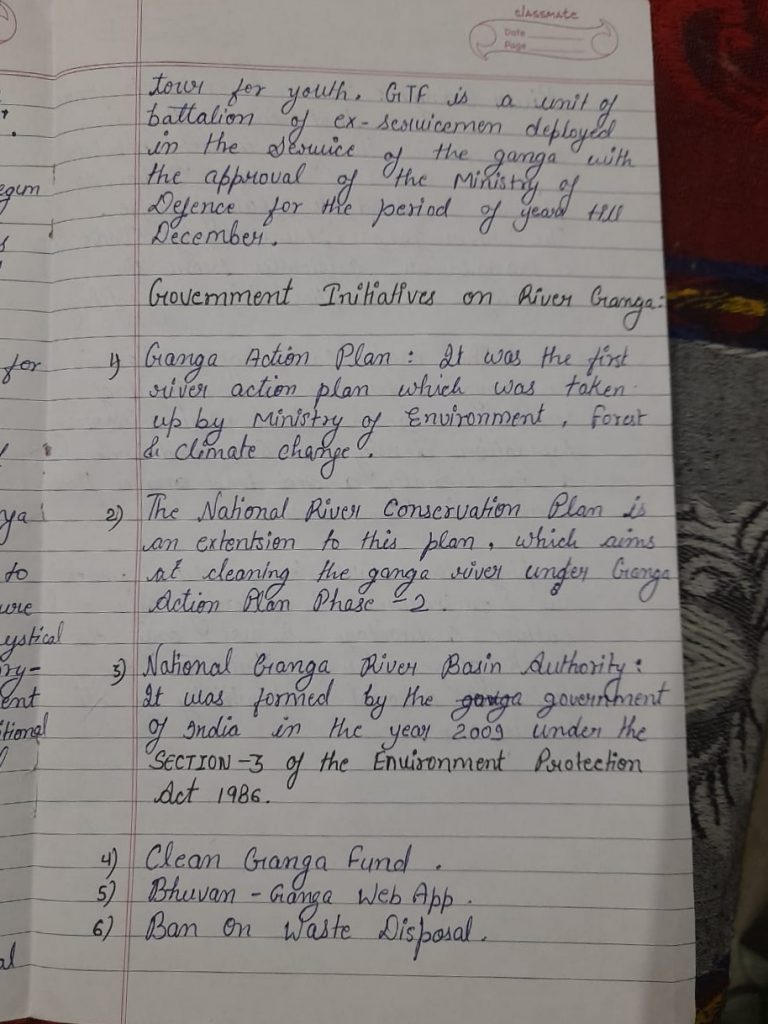 classmate
Date
Page
tour for youth. GTF is a unit of
battalion of ex-servicemen deployed
in the service of the ganga with
the approval of the Ministry of
Defence for the period of years till
December.
Government Initiatives on River Ganga:
1) Ganga Action Plan : It was the first
river action plan which was taken
up by Ministry of Environment, Forest
& climate change.
2) The National River Conservation Plan is
an extentsion to this plan, which aims
at cleaning the ganga river under Ganga
Action Plan Phase -2.
3) National Ganga River Basin Authority:
It was formed by the ganga government
of India in the year 2009 under the
SECTION-3 of the Environment Protection
Act 1986.
4) Clean Ganga Fund.
5) Bhuvan - Ganga Web App.
6) Ban On Waste Disposal.
egum
for
ya
to
ure
ystical
ry-
ent
itional
al